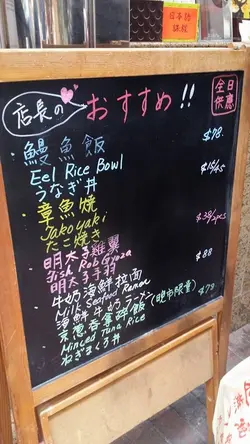 日本語
課程
店長の
おすすめ!!
全日
供應
鰻魚飯 $78.
Eel Rice Bowl
うなぎ丼
章魚焼
Takoyaki
たこ焼き
明太子雞翼
Fish Rob Gyoza
明太子手羽
牛奶海鮮拉面 $88
Milk Seafood Ramen
海鮮牛奶ラーメン(晚市限量)
Minced Tuna Rice $79
ねぎまぐろ丼